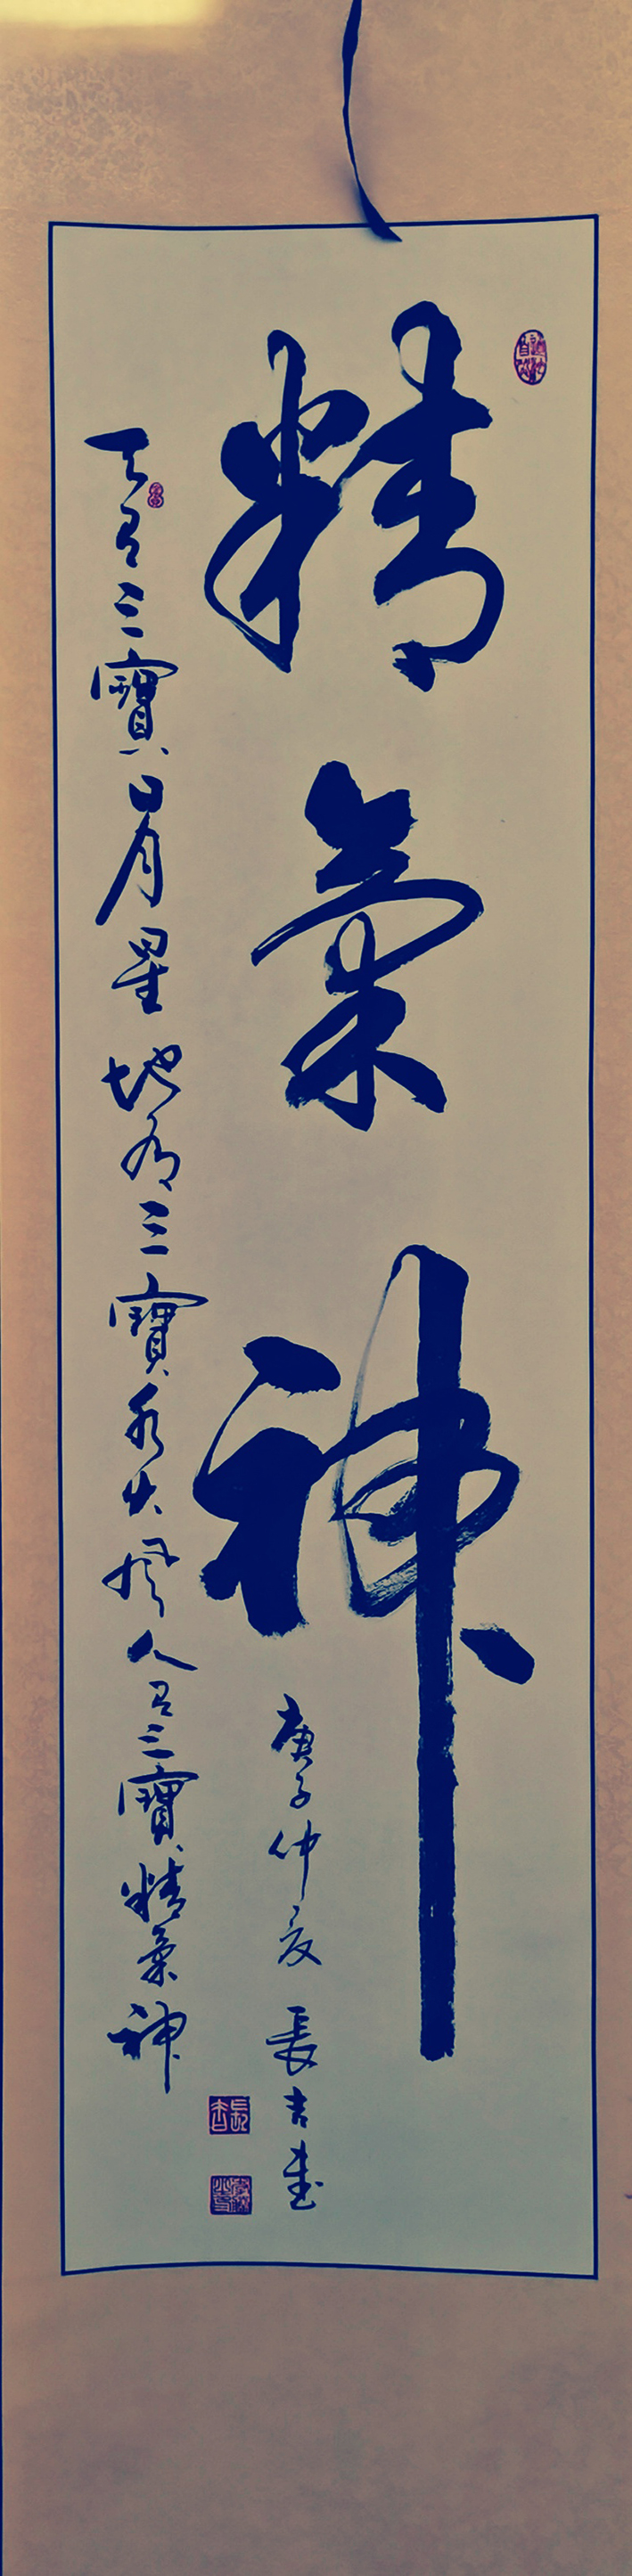 精氣神
庚子仲夏 長吉書
天有三寶日月星 地有三寶水火風 人有三寶精氣神